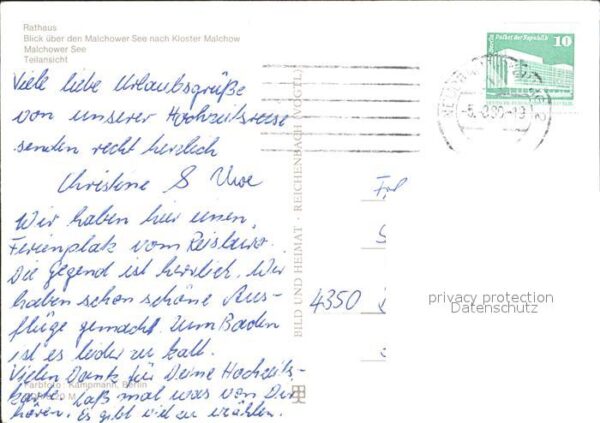 Rathaus
Blick über den Malchower See nach Kloster Malchow
Malchower See
Teilansicht
Viele liebe Urlaubsgrüße
von unserer Hochzeitsreise
senden recht herzlich
Christine & Uwe
Wir haben hier einen
Ferienplatz vom Reisebüro.
Die Gegend ist herrlich. Wir
haben schon schöne Aus-
flüge gemacht. Zum Baden
ist es leider zu kalt.
Vielen Dank für Deine Hochzeits-
karte. Laß mal was von Dir
hören. Es gibt viel zu erzählen.
Farbfoto: Kampmann, Berlin
BILD UND HEIMAT · REICHENBACH (VOGTL)
Berlin
Palast der Republik
10
4350
privacy protection
Datenschutz